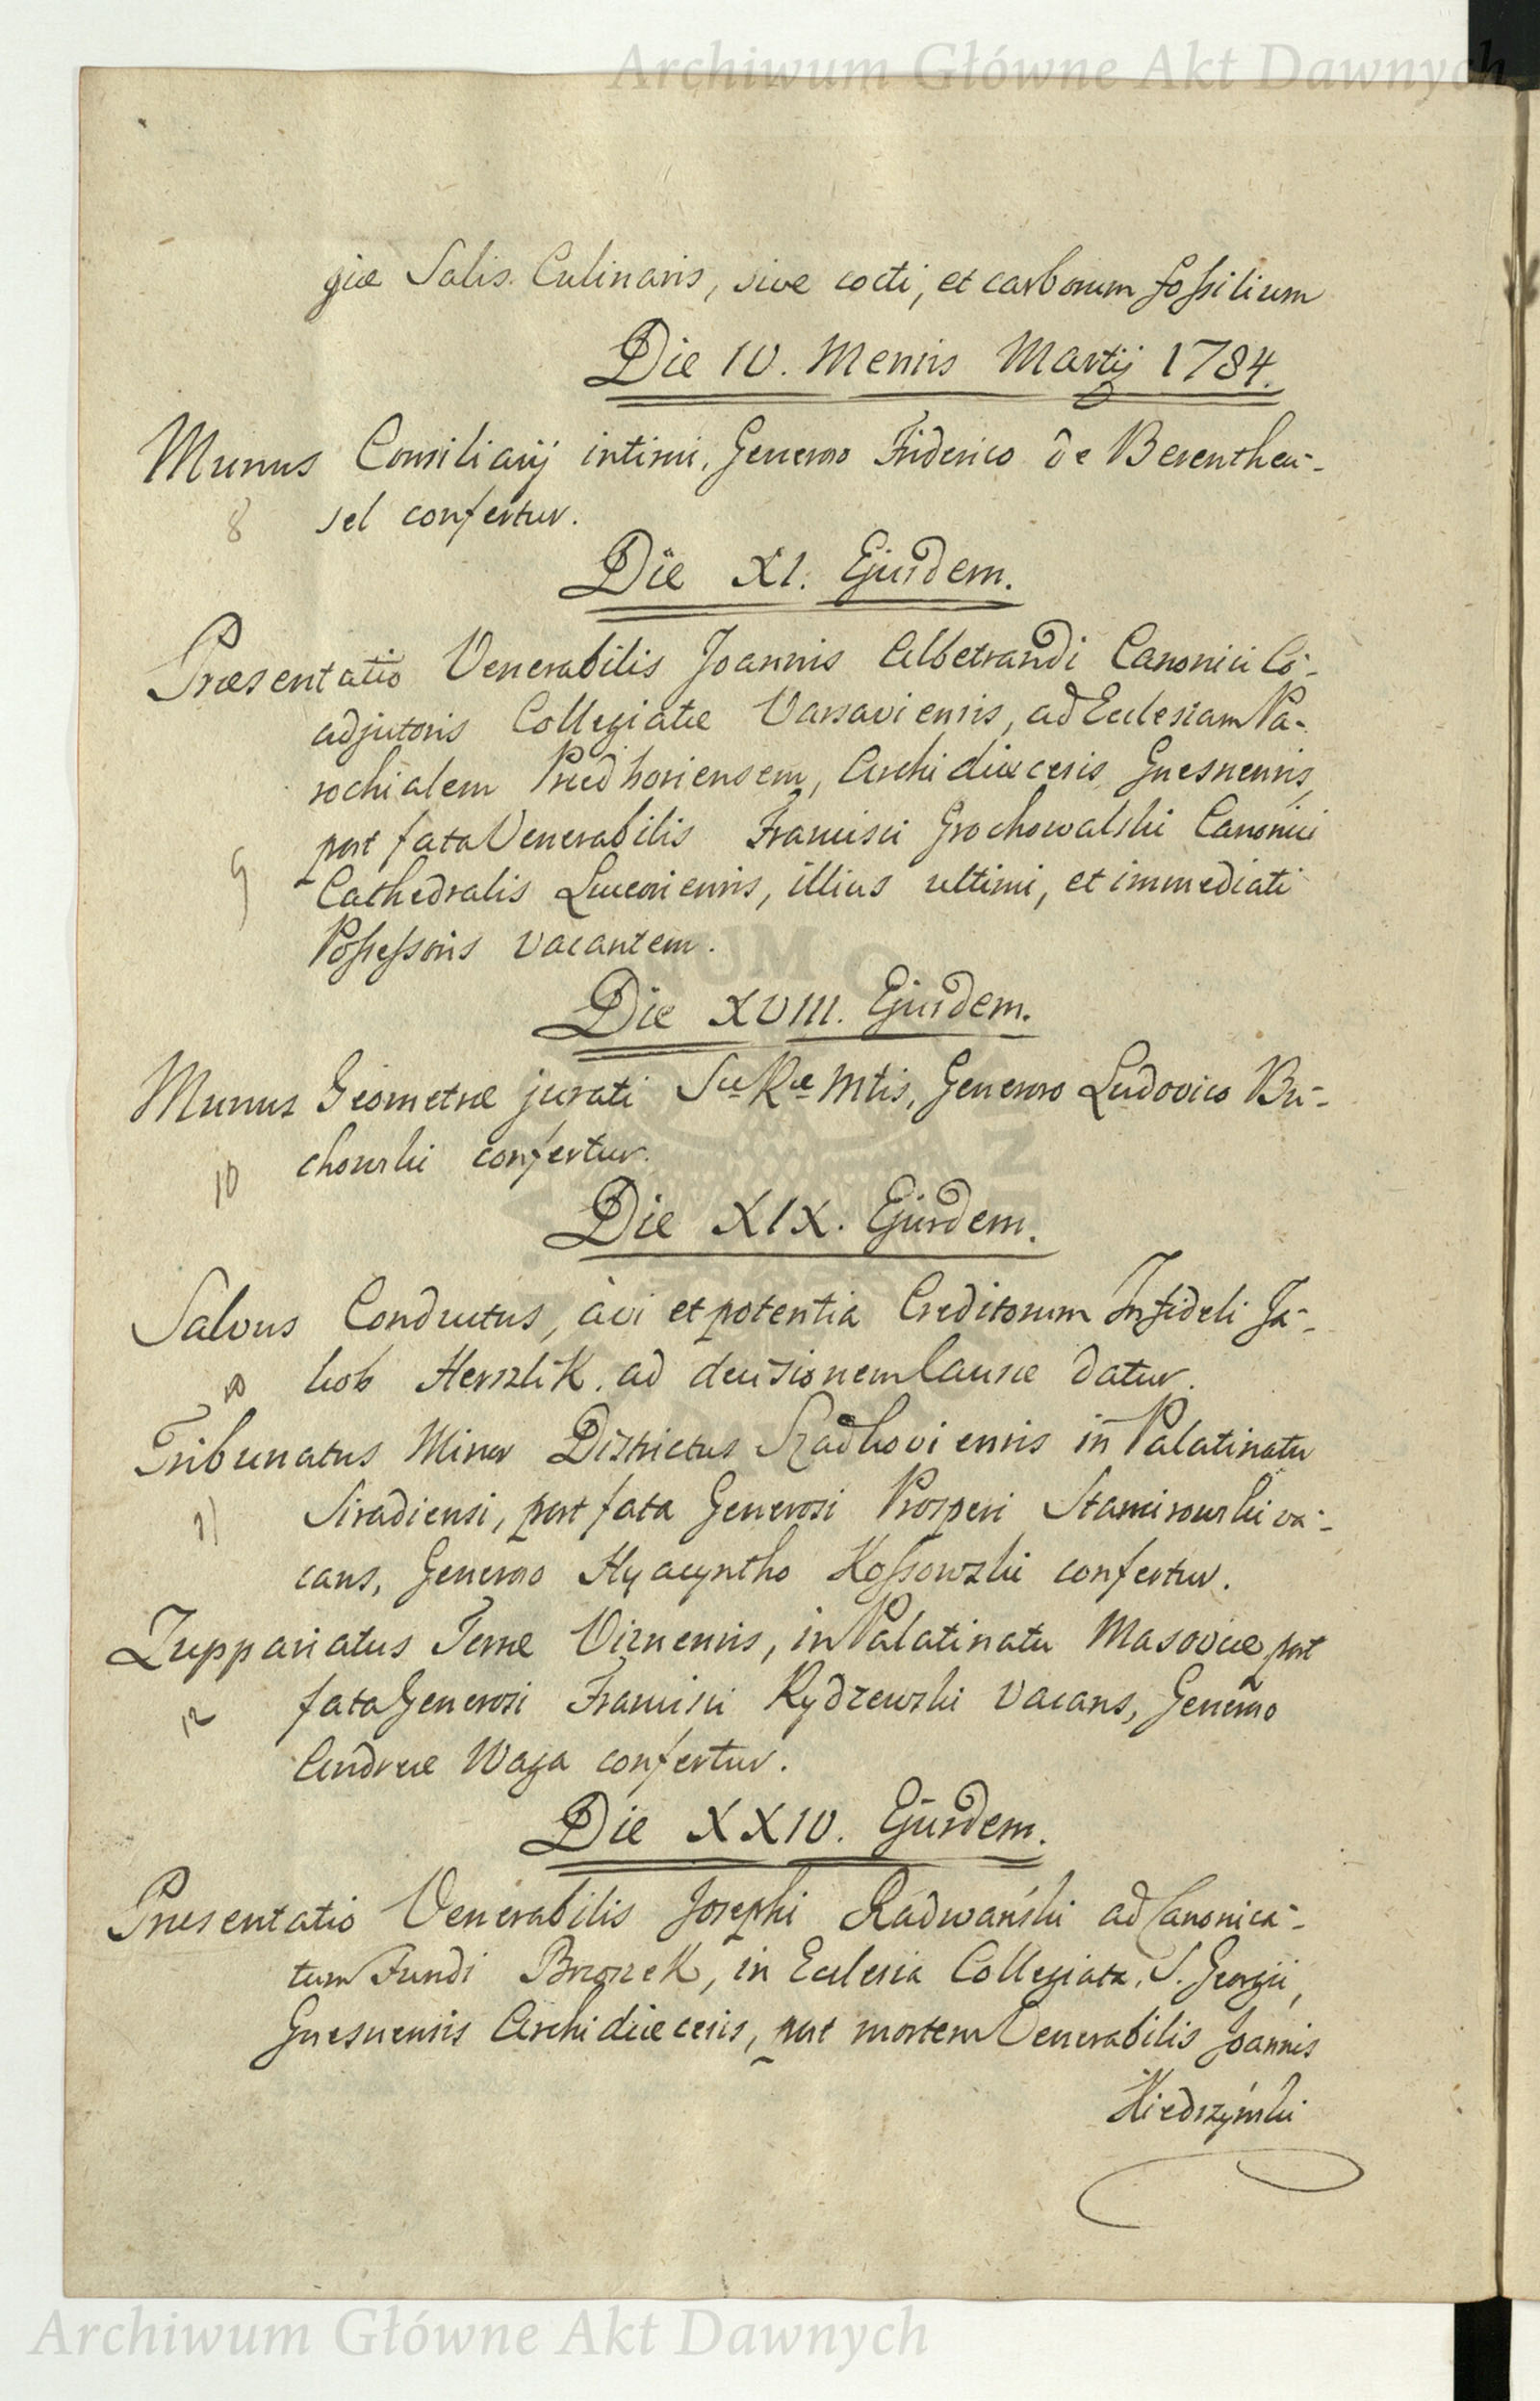 Archiwum Główne Akt Dawnych
giæ Salis Culinaris, sive cocti, et carbonum fossilium
Die IV. Mensis Martij 1784.
Munus Consiliarij intimi, Generoso Friderico de Berenthen-
8 sel confertur.
Die XI. Ejusdem.
Præsentatio Venerabilis Joannis Albetrandi Canonici Co-
adjutoris Collegiatæ Varsaviensis, ad Ecclesiam Pa-
rochialem Przedboriensem, Archidiæcesis Gnesnensis,
post fata Venerabilis Francisci Grochowalski Canonici
9 Cathedralis Luceoriensis, illius ultimi, et immediati
Possessoris vacantem.
Die XVIII. Ejusdem.
Munus Geometræ jurati Suæ Ræ Mtis, Generoso Ludovico Bu-
10 chowski confertur.
Die XIX. Ejusdem.
Salvus Conductus, à vi et potentia Creditorum Infideli Ja-
10 kob Herszlik, ad decisionem Causæ datur.
Tribunatus Minor Districtus Szadkoviensis in Palatinatu
11 Siradiensi, post fata Generosi Prosperi Stamirowski va-
cans, Generoso Hyacyntho Kossowski confertur.
Zuppariatus Terræ Viznensis, in Palatinatu Masoviæ post
12 fata Generosi Francisci Rydzewski vacans, Generoso
Andreæ Waga confertur.
Die XXIV. Ejusdem.
Præsentatio Venerabilis Josephi Radwański ad Canonica-
tum Fundi Brzozek, in Ecclesia Collegiata S. Georgii,
Gnesnensis Archidiæcesis, post mortem Venerabilis Joannis
Kiedrzyński
Archiwum Główne Akt Dawnych